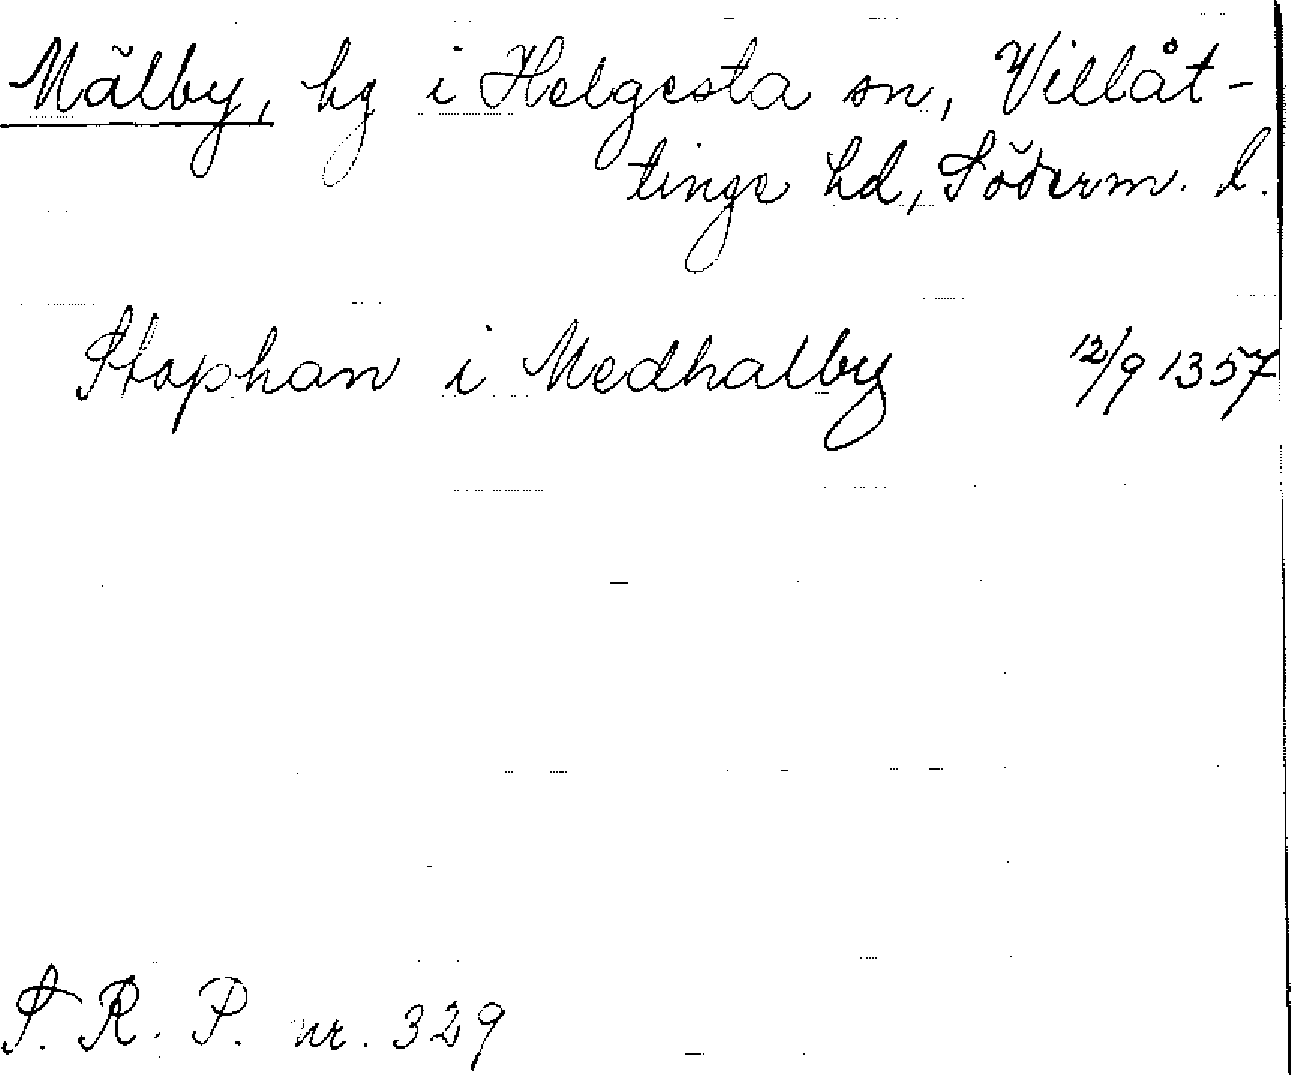 Mälby, hg i Helgesta sn, Villåt-
tinge hd, Söderm. l.
Staphan i Medhalby 12/9 1357
S. R. P. nr. 329